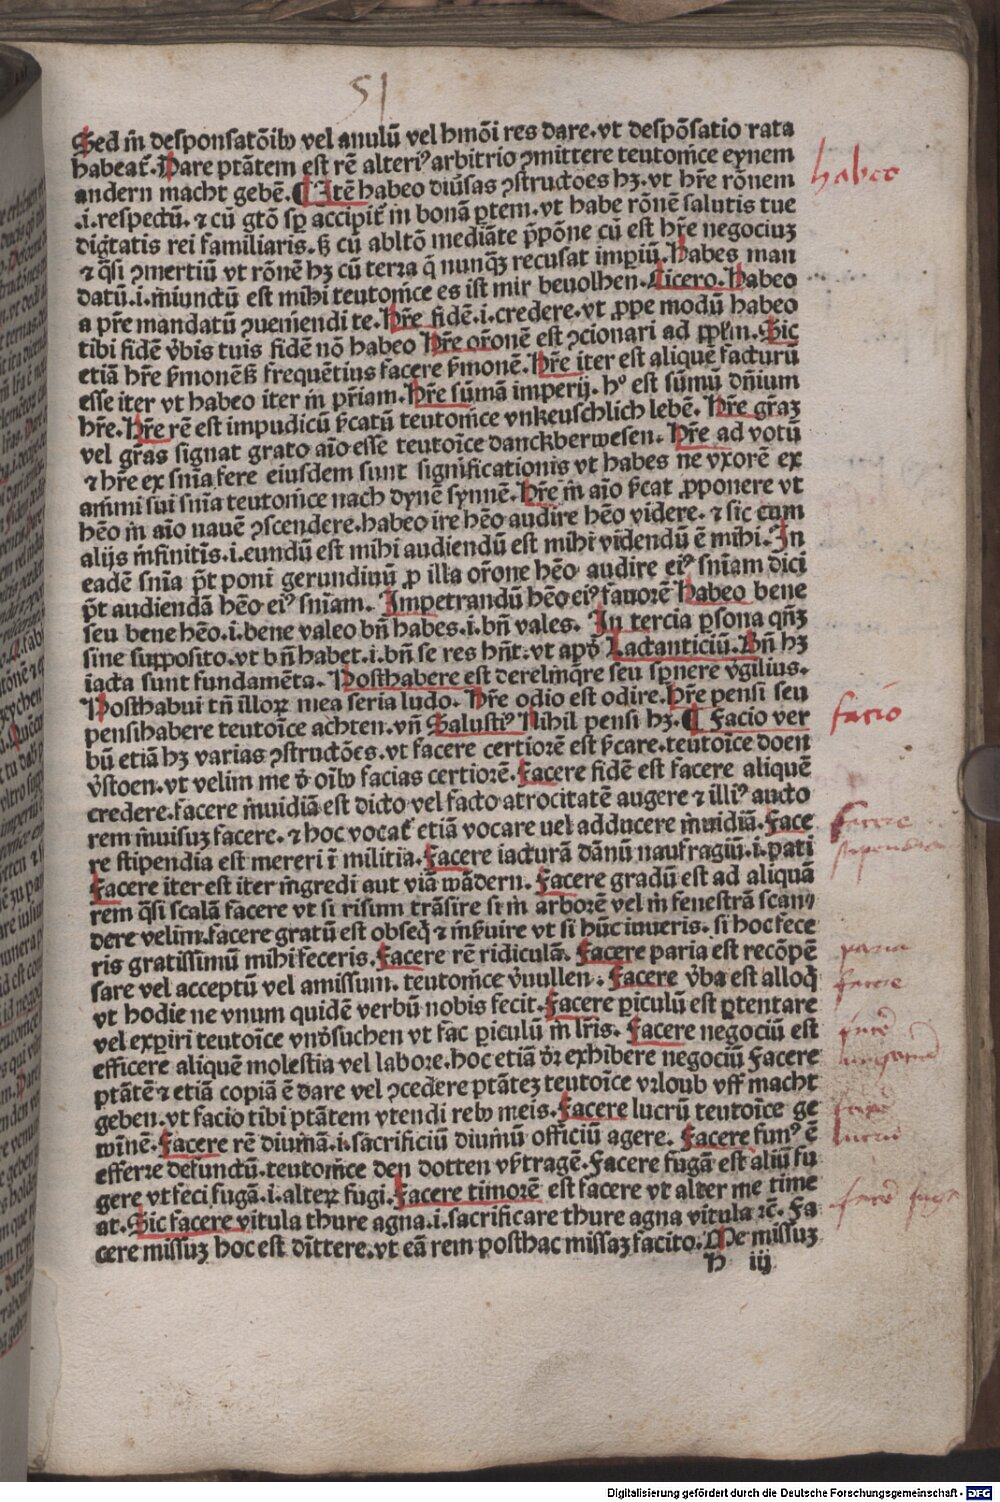 51
Sed in desponsatōibꝰ vel anulū vel hmōi res dare·vt despōsatio rata
habeat᷑·Dare ptātem est rē alteriꝰ arbitrio ꝯmittere teutoīce eynem
andern macht gebē.¶ Itē habeo diūsas ꝯstructōes hꝫ·vt hr̄e rōnem
.i.respectū·⁊ cū gtō sp̄ accipit᷑ in bonā ptem·vt habe rōnē salutis tue
digtatis rei familiaris·ß cū abltō mediāte ꝓpōne cū est hr̄e negociuꝫ
⁊ qͣsi ꝯmertiū vt rōnē hꝫ cū terra q̄ nunqꝫ recusat imꝑiū·Habes man
datū·i·iniunctū est mihi teutoīce es ist mir beuolhen·Cicero·Habeo
a pr̄e mandatū ꝯueniendi te·Hr̄e fidē·i·credere·vt ꝓpe modū habeo
tibi fidē v̄bis tuis fidē nō habeo Hr̄e or̄onē est ꝯcionari ad ꝓplm·Sic
etiā hr̄e s̄monēß frequētius facere s̄monē·Hr̄e iter est aliquē facturū
esse iter vt habeo iter in pr̄iam·Hr̄e sūmā imperij·hͦ est sūmū dn̄ium
hr̄e·Hr̄e rē est impudicū p̄catū teutoīce vnkeuschlich lebē·Hr̄e gr̄aꝫ
vel gr̄as signat grato aīo esse teutoīce danckberwesen·Hr̄e ad votū
⁊ hr̄e ex snīa fere eiusdem sunt significationis vt habes ne vxorē ex
animi sui snīa teutoīce nach dynē synnē·Hr̄e in aīo s̄cat ꝓponere vt
hēo in aīo nauē ꝯscendere·habeo ire hēo audire hēo videre·⁊ sic cum
alijs infinitīs·i·eundū est mihi audiendū est mihi videndū ē mihi·In
eadē snīa p̄t poni gerundiuū ꝓ illa or̄one hēo audire eiꝰ snīam dici
p̄t audiendā hēo eiꝰ snīam· Impetrandū hēo eiꝰ fauorē Habeo bene
seu bene hēo·i·bene valeo bn̄ habes·i·bn̄ vales· In tercia ꝑsona qn̄ꝫ
sine supposito·vt bn̄ habet·i·bn̄ se res hn̄t·vt apđ Lactanticiū·Bn̄ hꝫ
iacta sunt fundamēta· Posthabere est derelinq̄re seu spnere v̄gilius·
Posthabui tn̄ illoꝝ mea seria ludo· Hr̄e odio est odire·Hr̄e pensi seu
pensihabere teutoīce achten·vn̄ Salustiꝰ Nihil pensi hꝫ·¶ Facio ver
bū etiā hꝫ varias ꝯstructōēs·vt facere certiorē est s̄care·teutoīce doen
v̄stoen·vt velim me đ oībꝰ facias certiorē·Facere fidē est facere aliquē
credere·facere inuidiā est dicto vel facto atrocitatē augere ⁊ illiꝰ aucto
rem inuisuꝫ facere·⁊ hoc vocat᷑ etiā vocare uel adducere inuidiā·Face
re stipendia est mereri ī militia·Facere iacturā dānū naufragiū·i·pati
Facere iter est iter ingredi aut viā wādern· Facere gradū est ad aliquā
rem qͣsi scalā facere vt si risum trāsire si in arborē vel in fenestrā scan
dere velim·facere gratū est obseq̄ ⁊ inßuire vt si hūc iuueris·si hoc fece
ris gratissimū mihi feceris·Facere rē ridiculā· Facere paria est recōpē
sare vel acceptū vel amissum·teutoīce v̄uullen· Facere v̄ba est alloq̄
vt hodie ne vnum quidē verbū nobis fecit·Facere ꝑiculū est ꝑtentare
vel exꝑiri teutoīce vnđsuchen vt fac ꝑiculū in lr̄is· Facere negociū est
efficere aliquē molestia vel labore·hoc etiā đr exhibere negociū Facere
ptātē ⁊ etiā copiā ē dare vel ꝯcedere ptāteꝫ teutoīce vrloub vff macht
geben·vt facio tibi ptātem vtendi rebꝰ meis·Facere lucrū teutoīce ge
wīnē·Facere rē diuinā·i·sacrificiū diuinū officiū agere· Facere funꝰ ē
efferre defunctū·teutoīce den dotten v̄tragē·Facere fugā est aliū fu
gere vt feci fugā·i·alteꝝ fugi·Facere timorē est facere vt alter me time
at·Sic facere vitula thure agna·i·sacrificare thure agna vitula ⁊c̄·Fa
cere missuꝫ hoc est dīttere·vt eā rem posthac missaꝫ facito·Me missuꝫ
h iij
habeo
facio
facere
stipendia
paria
facere
facere
negocium
facere
lucrū
facere fuga
Digitalisierung gefördert durch die Deutsche Forschungsgemeinschaft - DFG